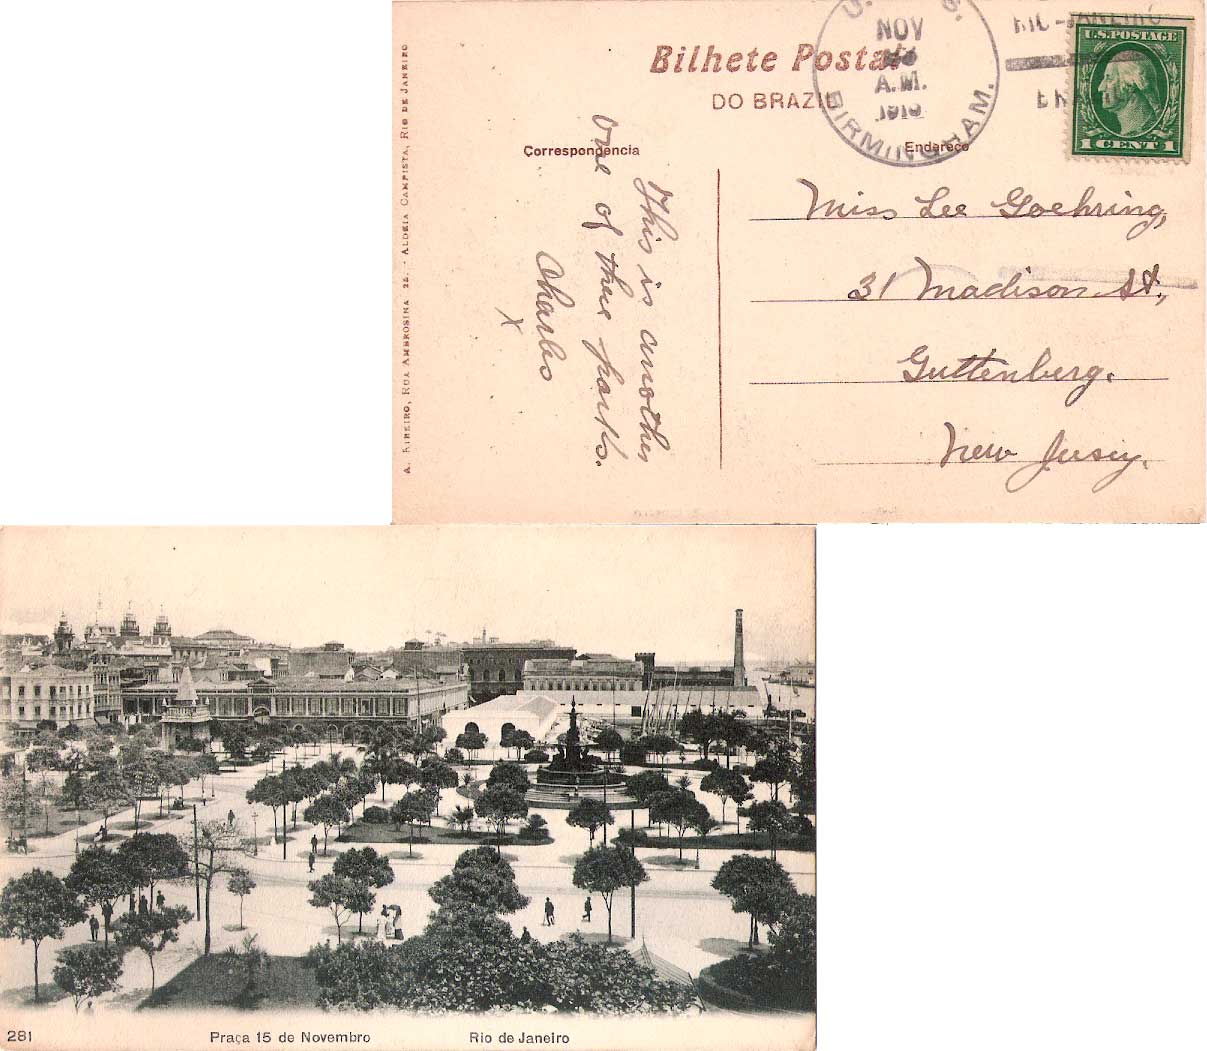 Bilhete Postal
DO BRAZIL
Correspondencia
Endereço
U.S.POSTAGE
1 CENT 1
NOV
A.M.
BIRMINGHAM.
RIO-JANEIRO
This is another
one of there parks.
Charles
X
Miss Lee Goehring,
31 Madison St.,
Guttenberg.
New Jersey.
A. RIBEIRO, RUA AMBROSINA 24. - ALDEIA CAMPISTA, RIO DE JANEIRO
281
Praça 15 de Novembro
Rio de Janeiro